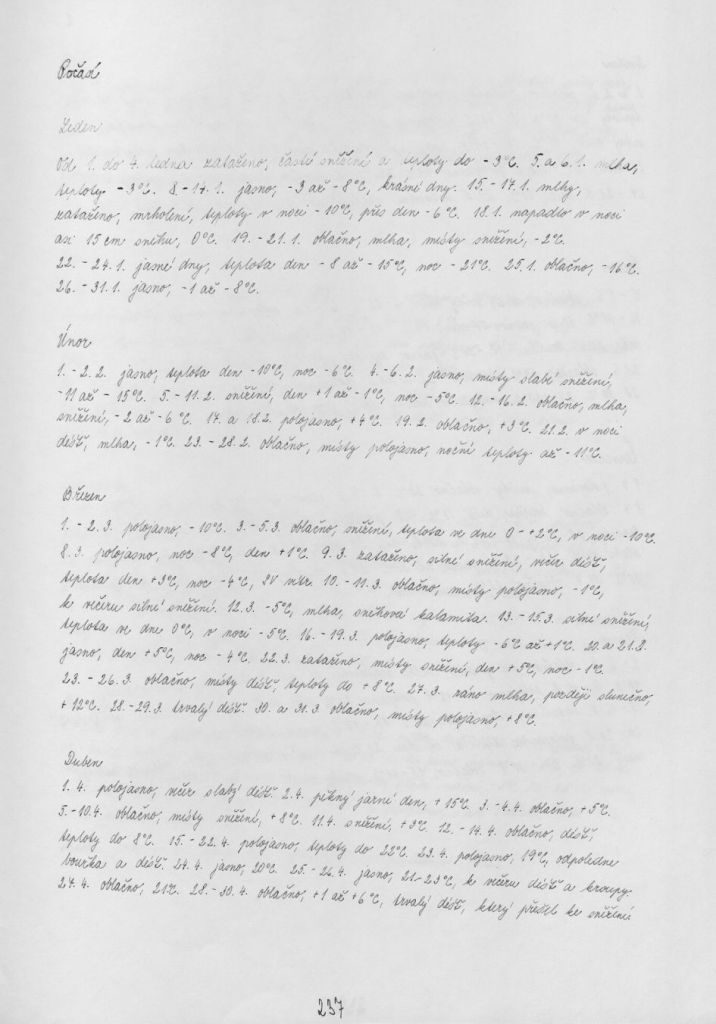 Počasí
Leden
Od 1. do 4. ledna zataženo, časté sněžení a teploty do -3°C. 5. a 6.1. mlha,
teploty -3°C. 8.-14.1. jasno, -3 až -8°C, krásné dny. 15.-17.1. mlhy,
zataženo, mrholení, teploty v noci -10°C, přes den -6°C. 18.1. napadlo v noci
asi 15 cm sněhu, 0°C. 19.-21.1. oblačno, mlha, místy sněžení, -2°C.
22.-24.1. jasné dny, teplota den -8 až -15°C, noc -21°C. 25.1. oblačno, -16°C.
26.-31.1. jasno, -1 až -8°C.
Únor
1.-2.2. jasno, teplota den -10°C, noc -6°C. 4.-6.2. jasno, místy slabé sněžení,
-11 až -15°C. 5.-11.2. sněžení, den +1 až -1°C, noc -5°C. 12.-16.2. oblačno, mlha,
sněžení, -2 až -6°C. 17. a 18.2. polojasno, +4°C. 19.2. oblačno, +3°C. 21.2. v noci
déšť, mlha, -1°C. 23.-28.2. oblačno, místy polojasno, noční teploty až -11°C.
Březen
1.-2.3. polojasno, -10°C. 3.-5.3. oblačno, sněžení, teplota ve dne 0-+2°C, v noci -10°C.
8.3. polojasno, noc -8°C, den +1°C. 9.3. zataženo, silné sněžení, večer déšť,
teplota den +3°C, noc -4°C, SV vítr. 10.-11.3. oblačno, místy polojasno, -1°C,
k večeru silné sněžení. 12.3. -5°C, mlha, sněhová kalamita. 13.-15.3. silné sněžení,
teplota ve dne 0°C, v noci -5°C. 16.-19.3. polojasno, teploty -6°C až +1°C. 20. a 21.3.
jasno, den +5°C, noc -4°C. 22.3. zataženo, místy sněžení, den +5°C, noc -1°C.
23.-26.3. oblačno, místy déšť, teploty do +8°C. 27.3. ráno mlha, později slunečno,
+12°C. 28.-29.3. trvalý déšť. 30. a 31.3. oblačno, místy polojasno, +8°C.
Duben
1.4. polojasno, večer slabý déšť. 2.4. pěkný jarní den, +15°C. 3.-4.4. oblačno, +5°C.
5.-10.4. oblačno, místy sněžení, +8°C. 11.4. sněžení, +3°C. 12.-14.4. oblačno, déšť,
teploty do 8°C. 15.-22.4. polojasno, teploty do 22°C. 23.4. polojasno, 19°C, odpoledne
bouřka a déšť. 24.4. jasno, 20°C. 25.-26.4. jasno, 21-23°C, k večeru déšť a kroupy.
27.4. oblačno, 21°C. 28.-30.4. oblačno, +1 až +6°C, trvalý déšť, který přešel ke sněžení.
237